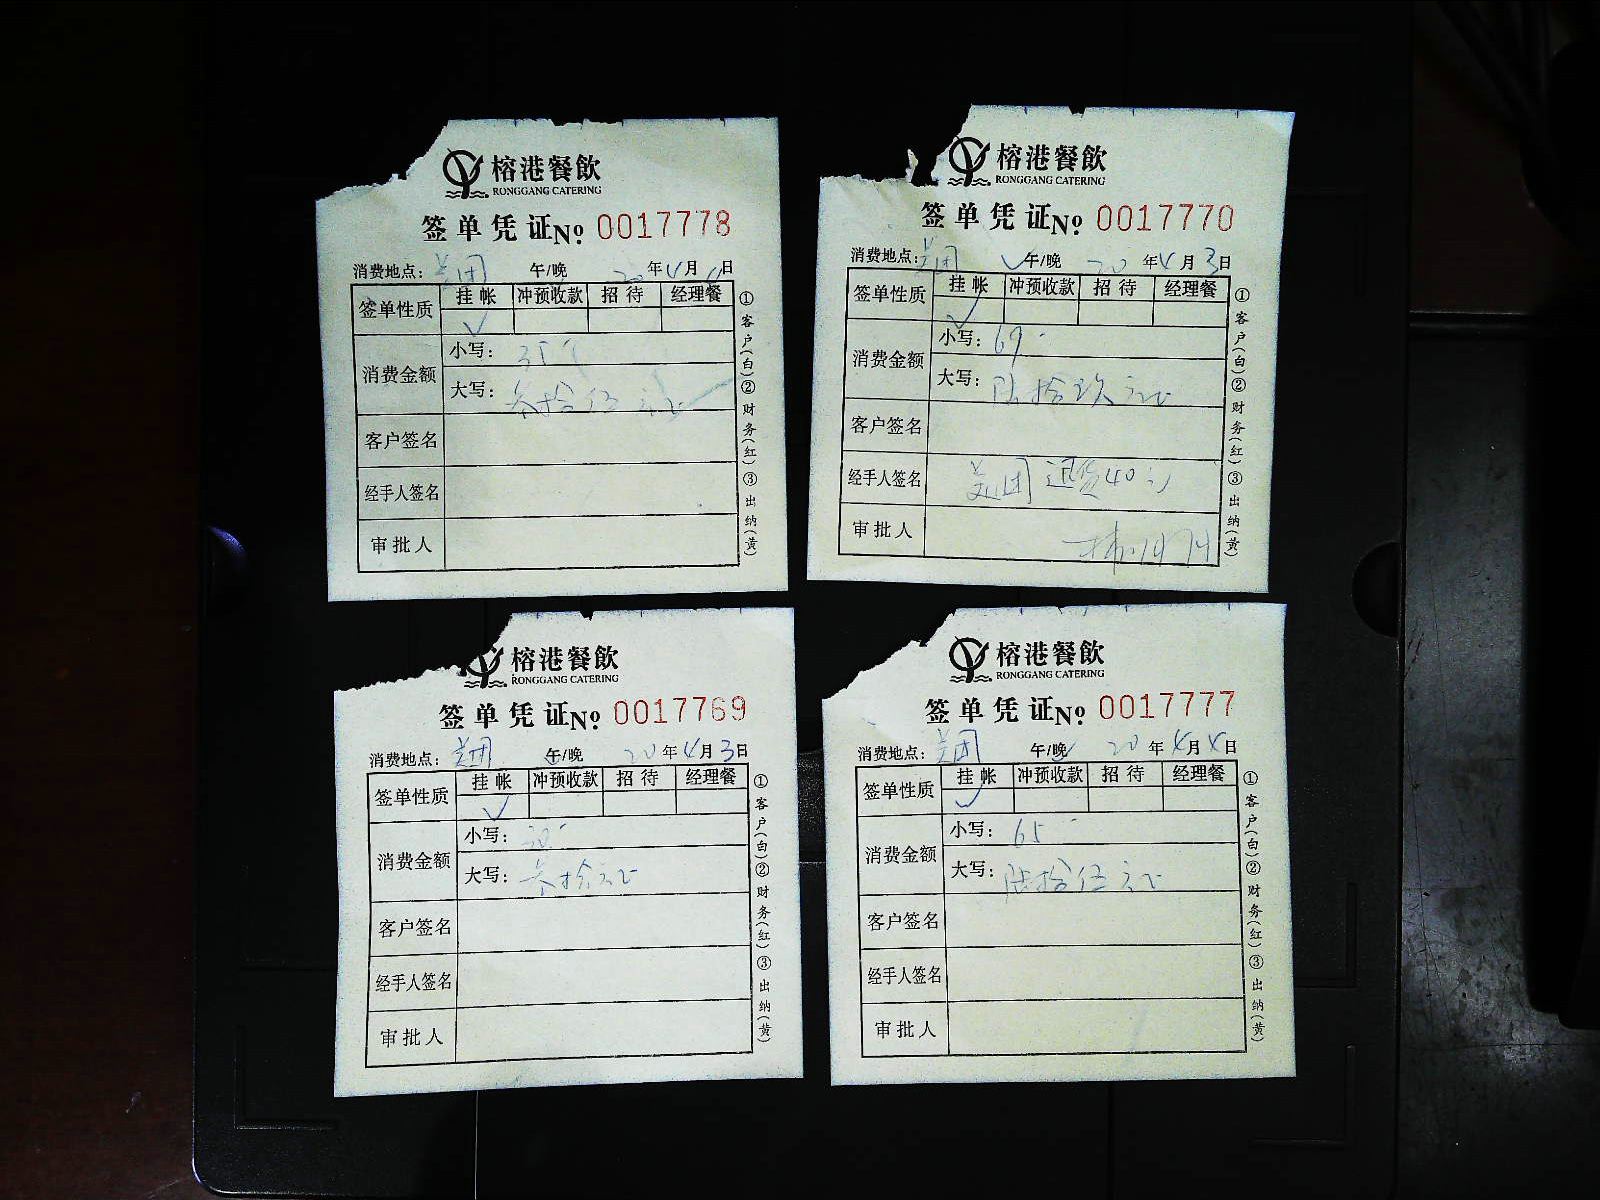 榕港餐飲
RONGGANG CATERING
签单凭证№ 0017778
消费地点：美团 午/晚 20年4月4日
签单性质 挂帐 冲预收款 招待 经理餐
✓
消费金额
小写：35
大写：叁拾伍元正
客户签名
经手人签名
审批人
①客户(白)②财务(红)③出纳(黄)
榕港餐飲
RONGGANG CATERING
签单凭证№ 0017770
消费地点：美团 ✓午/晚 20年4月3日
签单性质 挂帐 冲预收款 招待 经理餐
✓
消费金额
小写：69
大写：陆拾玖元正
客户签名
经手人签名 美团退货40元
审批人
①客户(白)②财务(红)③出纳(黄)
榕港餐飲
RONGGANG CATERING
签单凭证№ 0017769
消费地点：美团 午/晚 20年4月3日
签单性质 挂帐 冲预收款 招待 经理餐
✓
消费金额
小写：30
大写：叁拾元正
客户签名
经手人签名
审批人
①客户(白)②财务(红)③出纳(黄)
榕港餐飲
RONGGANG CATERING
签单凭证№ 0017777
消费地点：美团 午/晚✓ 20年4月4日
签单性质 挂帐 冲预收款 招待 经理餐
✓
消费金额
小写：65
大写：陆拾伍元正
客户签名
经手人签名
审批人
①客户(白)②财务(红)③出纳(黄)